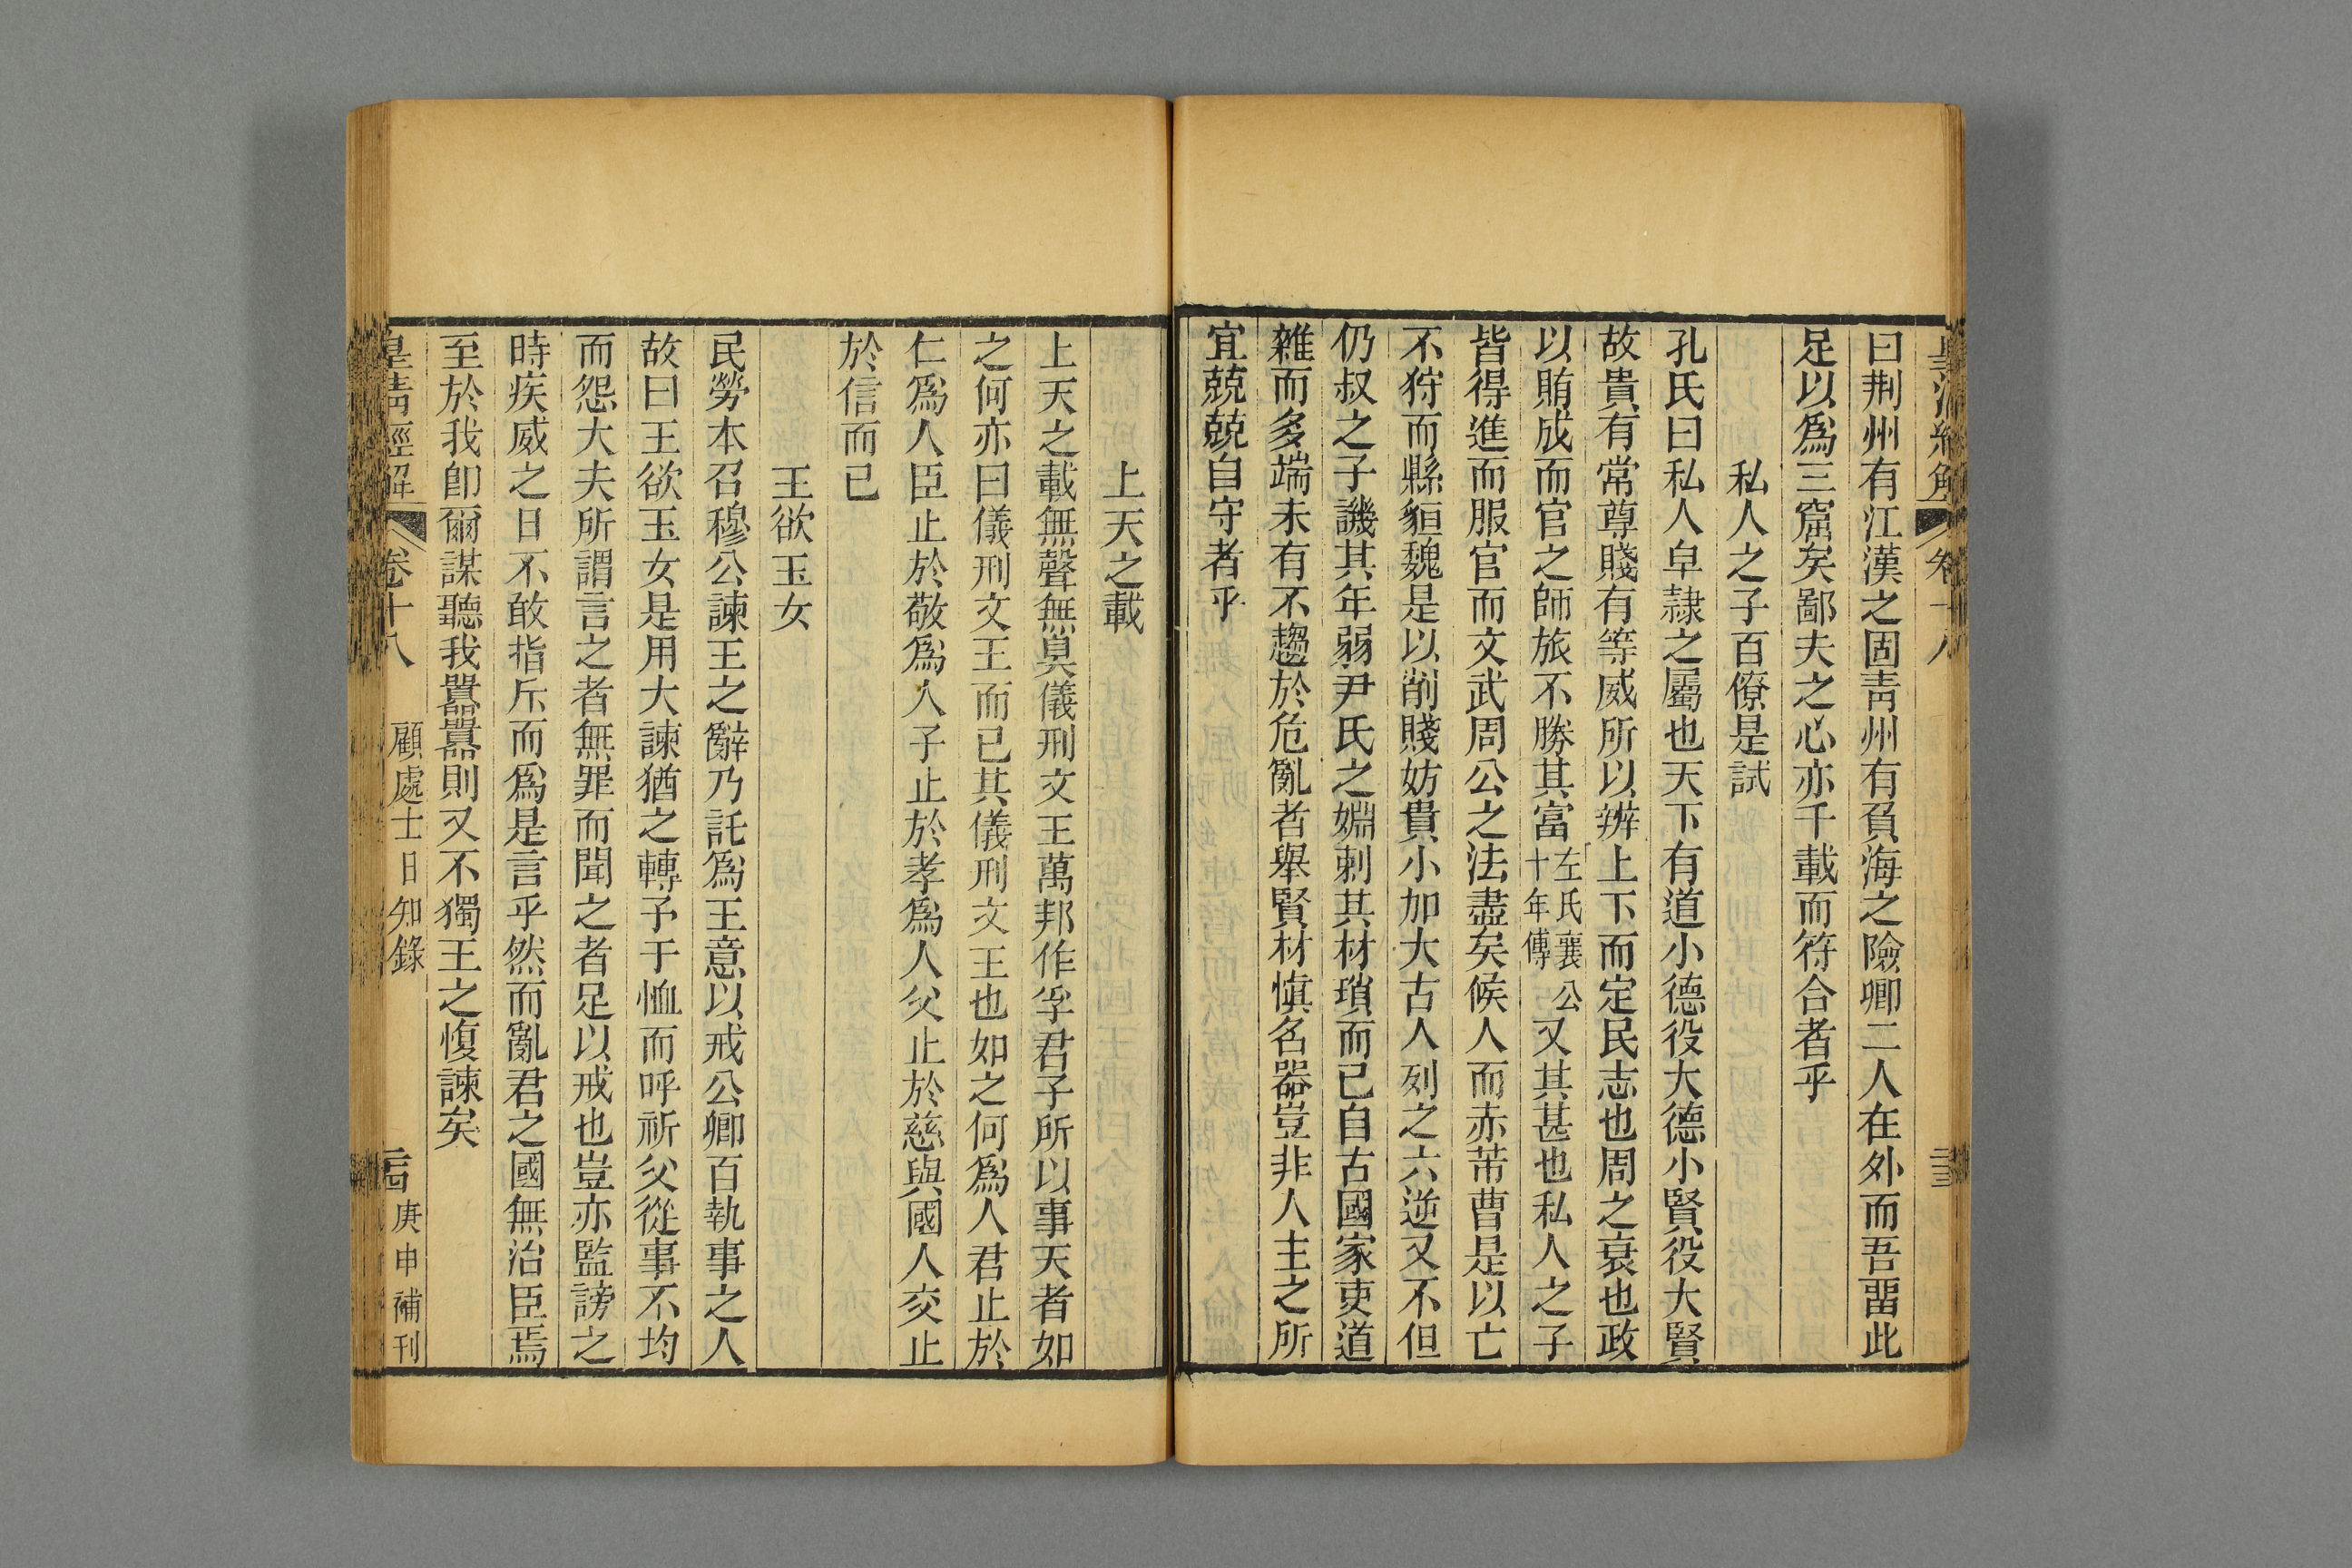 皇清經解 卷十八 二三
曰荆州有江漢之固靑州有負海之險卿二人在外而吾畱此
足以爲三窟矣鄙夫之心亦千載而符合者乎
私人之子百僚是試
孔氏曰私人皁隷之屬也天下有道小德役大德小賢役大賢
故貴有常尊賤有等威所以辨上下而定民志也周之衰也政
以賄成而官之師旅不勝其富左氏襄公十年傳又其甚也私人之子
皆得進而服官而文武周公之法盡矣候人而赤芾曹是以亡
不狩而縣貆魏是以削賤妨貴小加大古人列之六逆又不但
仍叔之子譏其年弱尹氏之姻刺其材瑣而已自古國家吏道
雜而多端未有不趨於危亂者舉賢材愼名器豈非人主之所
宜兢兢自守者乎
上天之載
上天之載無聲無臭儀刑文王萬邦作孚君子所以事天者如
之何亦曰儀刑文王而已其儀刑文王也如之何爲人君止於
仁爲人臣止於敬爲人子止於孝爲人父止於慈與國人交止
於信而已
王欲玉女
民勞本召穆公諫王之辭乃託爲王意以戒公卿百執事之人
故曰王欲玉女是用大諫猶之轉予于恤而呼祈父從事不均
而怨大夫所謂言之者無罪而聞之者足以戒也豈亦監謗之
時疾威之日不敢指斥而爲是言乎然而亂君之國無治臣焉
至於我卽爾謀聽我囂囂則又不獨王之愎諫矣
皇淸經解 卷十八 顧處士日知錄 二四 庚申補刊